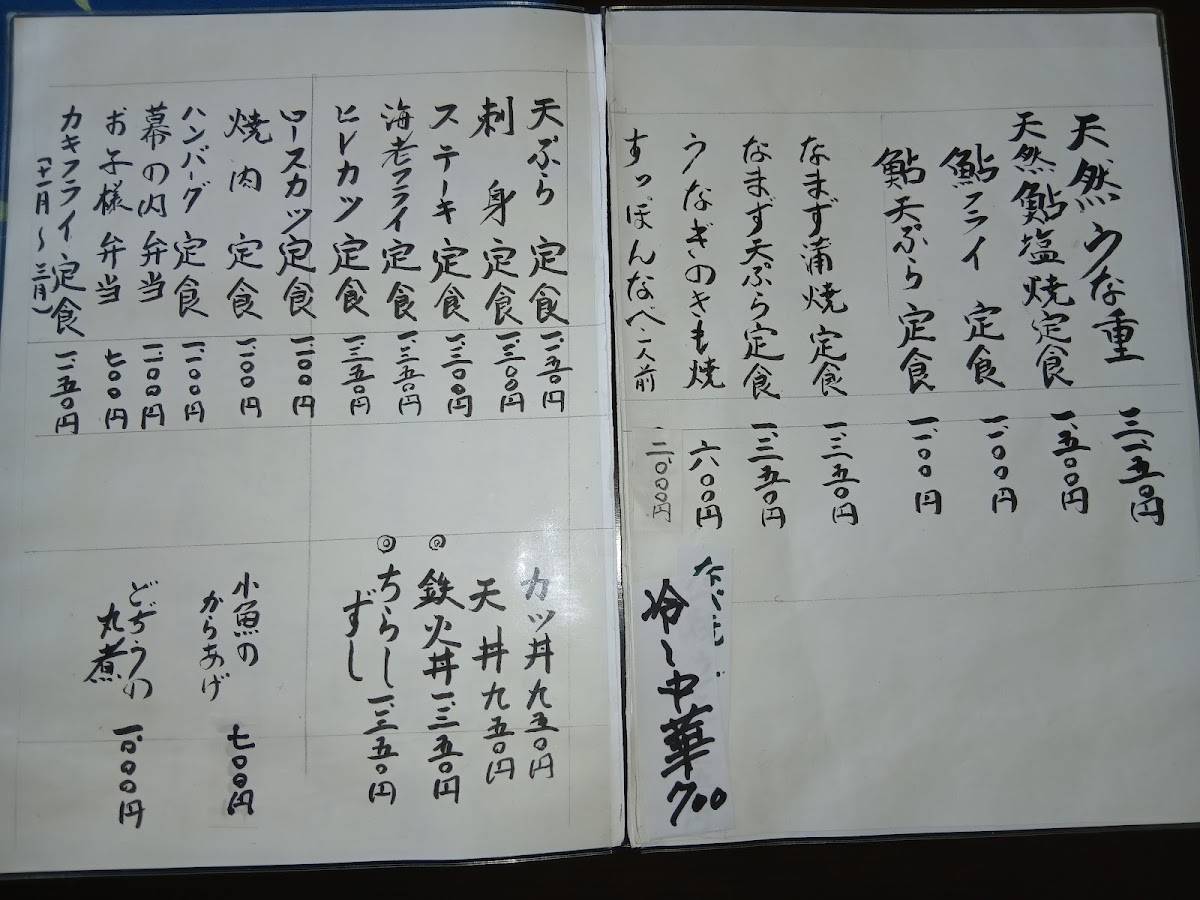 天然うな重 三、一五〇円
天然鮎塩焼定食 一、五〇〇円
鮎フライ定食 一、一〇〇円
鮎天ぷら定食 一、一〇〇円
なまず蒲焼定食 一、三五〇円
なまず天ぷら定食 一、三五〇円
うなぎのきも焼 六〇〇円
すっぽんなべ一人前 一二、〇〇〇円
冷し中華 700
天ぷら定食 一、一五〇円
刺身定食 一、三〇〇円
ステーキ定食 一、三〇〇円
海老フライ定食 一、三五〇円
ヒレカツ定食 一、三五〇円
ロースカツ定食 一、一〇〇円
焼肉定食 一、一〇〇円
ハンバーグ定食 一、一〇〇円
幕の内弁当 一、一〇〇円
お子様弁当 七〇〇円
カキフライ定食 一、一五〇円
(十一月〜三月)
カツ丼 九五〇円
天丼 九五〇円
◎鉄火丼 一、三五〇円
◎ちらし
ずし 一、三五〇円
小魚の
からあげ 七〇〇円
どぢうの
丸煮 一、〇〇〇円